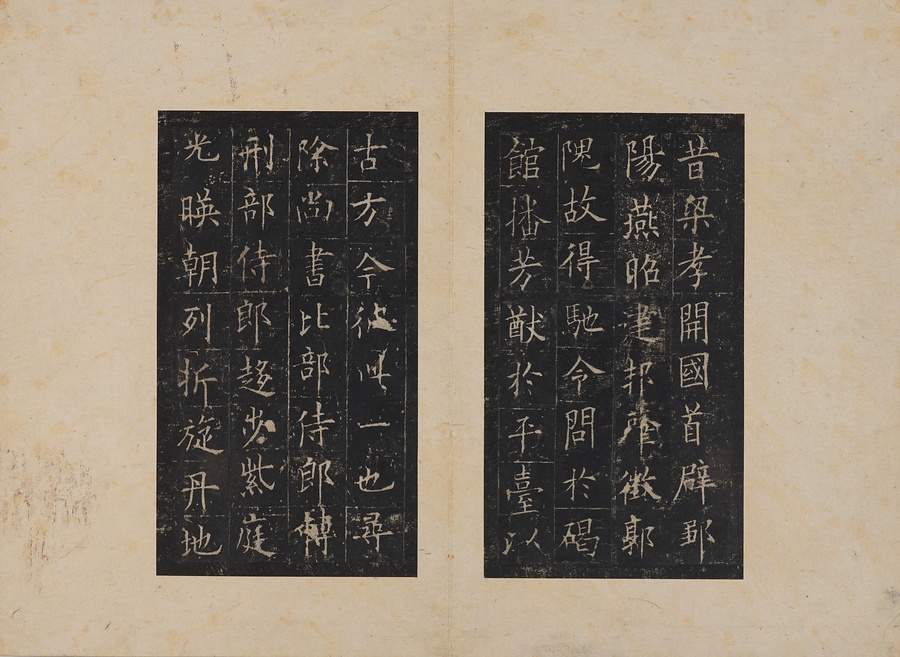 昔梁孝開國首辟鄒
陽燕昭建邦肇徵郭
隗故得馳令問於碣
館播芳猷於平臺以
古方今彼此一也尋
除尚書比部侍郎轉
刑部侍郎趍步紫庭
光暎朝列折旋丹地